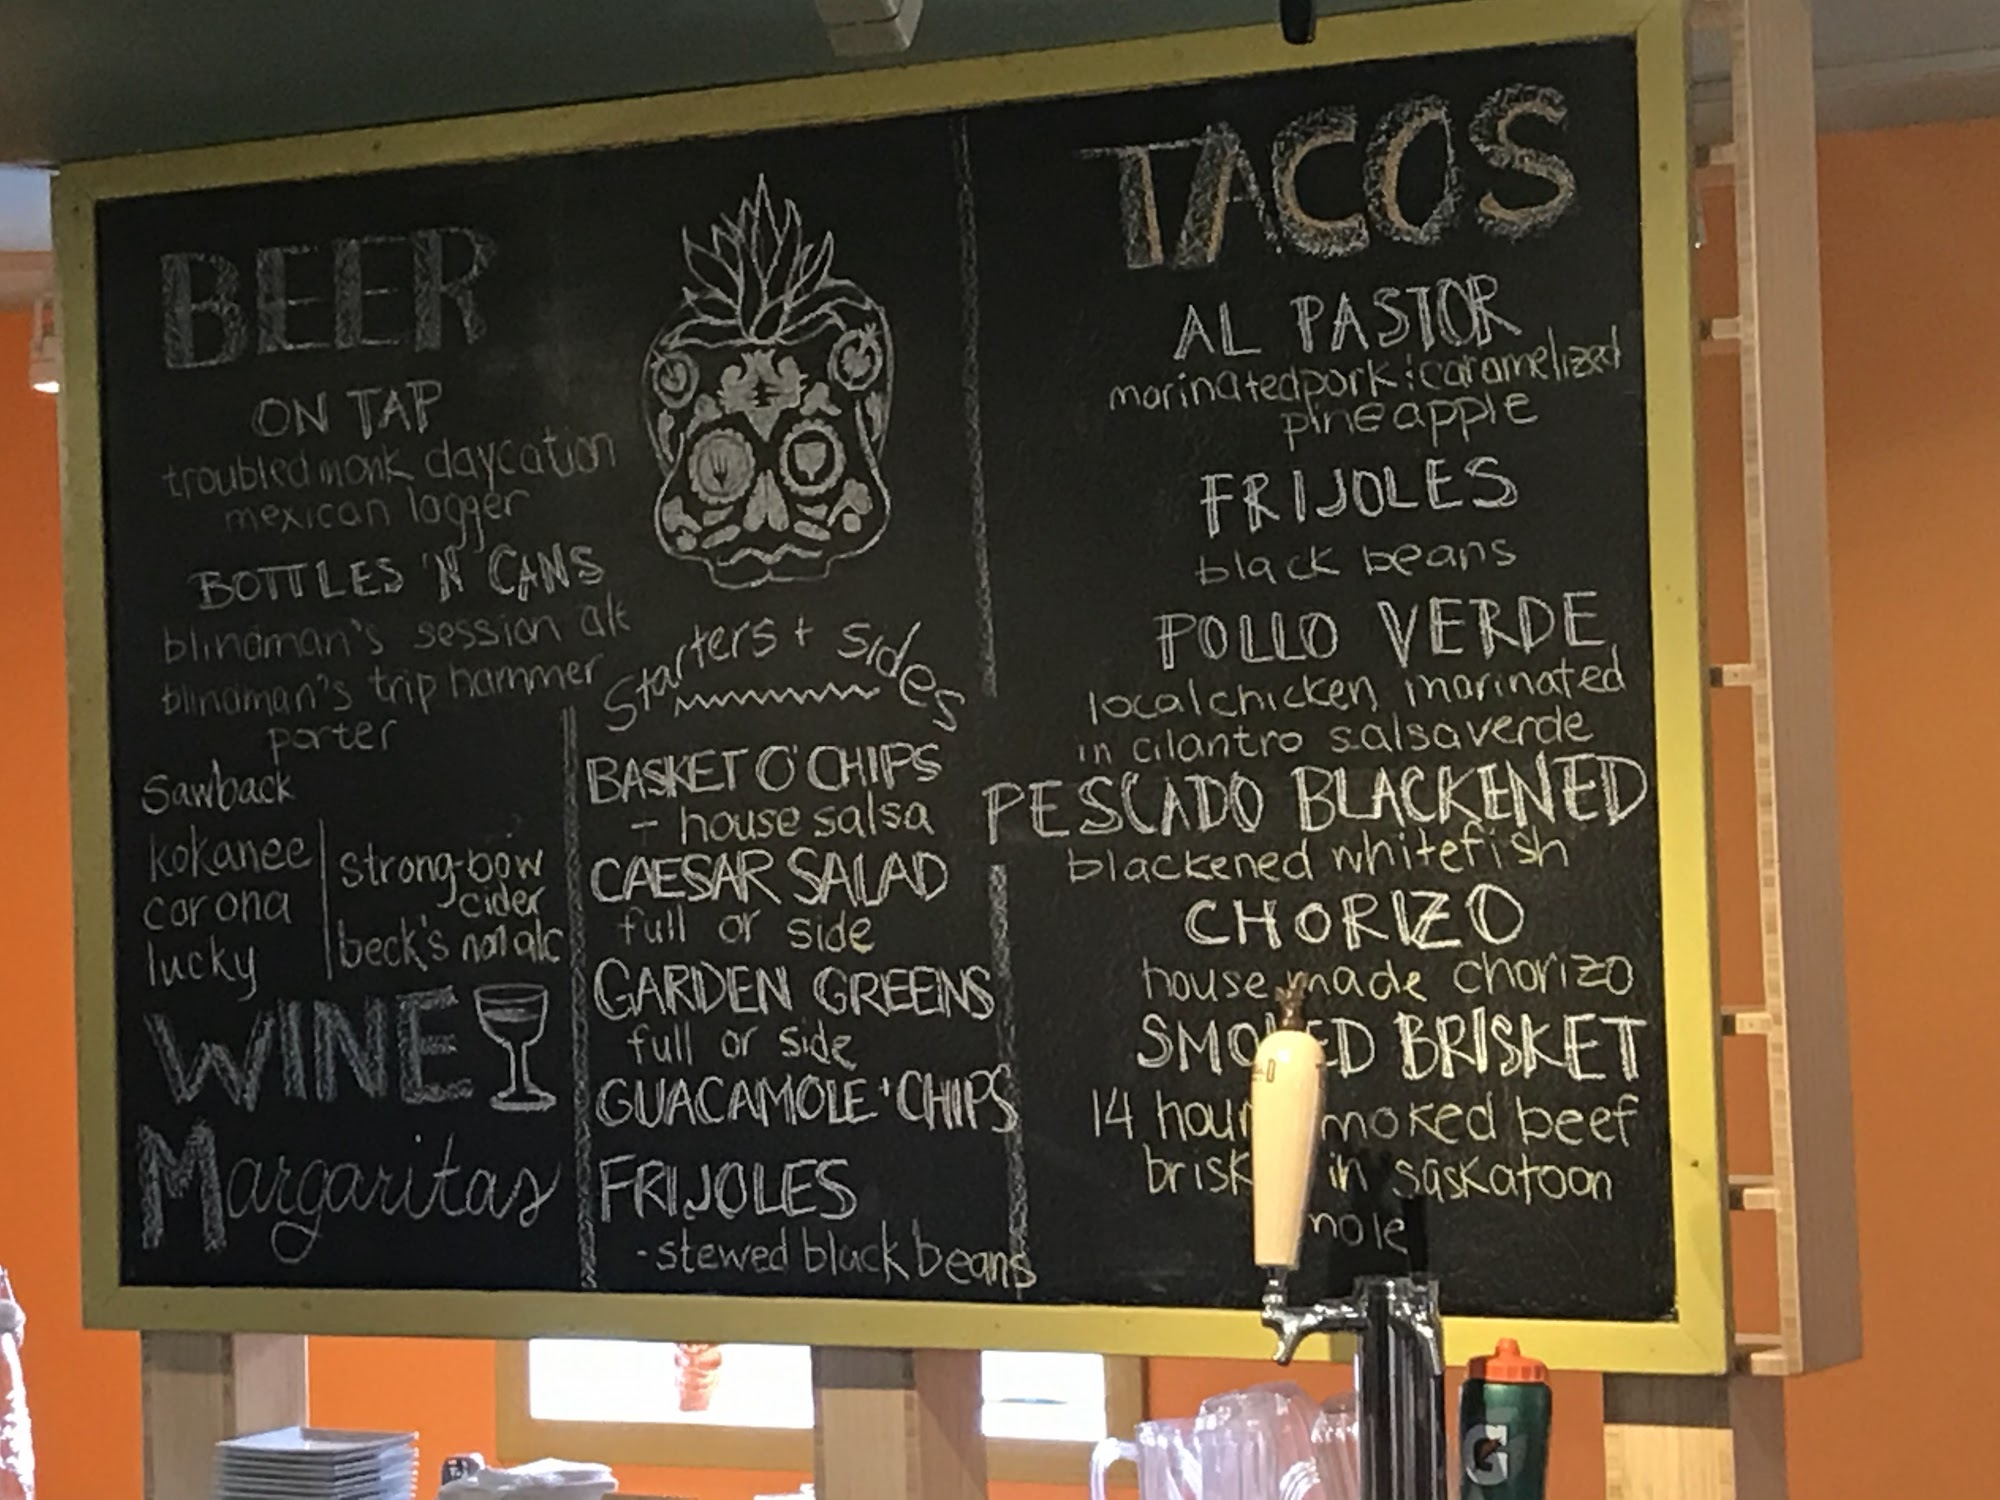 BEER
ON TAP
troubled monk daycation
mexican lagger
BOTTLES 'N' CANS
blindman's session ale
blindman's trip hammer
porter
Sawback
kokanee
corona
lucky
strong-bow
cider
beck's non alc
WINE
Margaritas
Starters + sides
BASKET O' CHIPS
- house salsa
CAESAR SALAD
full or side
GARDEN GREENS
full or side
GUACAMOLE + CHIPS
FRIJOLES
- stewed black beans
TACOS
AL PASTOR
marinated pork : caramelized
pineapple
FRIJOLES
black beans
POLLO VERDE
local chicken, marinated
in cilantro salsa verde
PESCADO BLACKENED
blackened whitefish
CHORIZO
house made chorizo
SMOKED BRISKET
14 hour smoked beef
brisket in saskatoon
mole
G